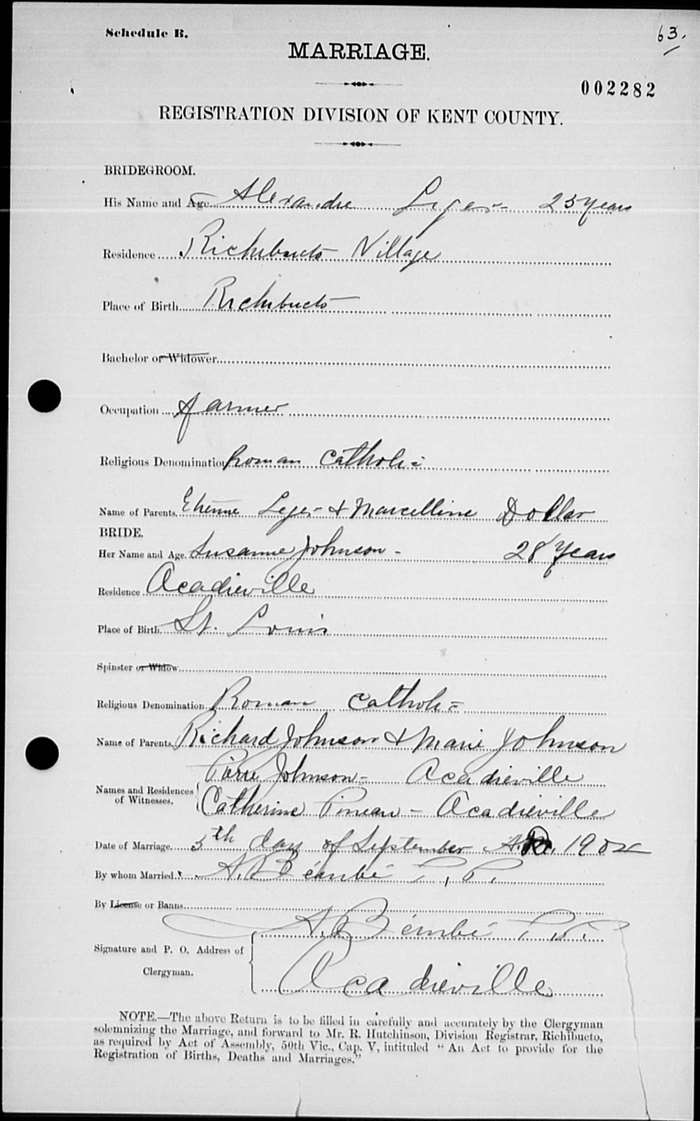 Schedule B.
63.
MARRIAGE.
002282
REGISTRATION DIVISION OF KENT COUNTY.
BRIDEGROOM.
His Name and Age Alexandre Leger 25 years
Residence Richibucto Village
Place of Birth Richibucto
Bachelor or Widower
Occupation farmer
Religious Denomination Roman Catholic
Name of Parents. Etienne Leger & Marcelline Dollar
BRIDE.
Her Name and Age. Susanne Johnson - 28 years
Residence Acadieville
Place of Birth St. Louis
Spinster or Widow
Religious Denomination Roman Catholic
Name of Parents Richard Johnson & Marie Johnson
Pierre Johnson - Acadieville
Names and Residences of Witnesses. Catherine Pineau - Acadieville
Date of Marriage. 5th day of September A.D. 1902
By whom Married. A. Bémbé P.P.
By License or Banns
A. Bémbé P.P.
Signature and P. O. Address of
Clergyman.
Acadieville
NOTE.—The above Return is to be filled in carefully and accurately by the Clergyman
solemnizing the Marriage, and forward to Mr. R. Hutchinson, Division Registrar, Richibucto,
as required by Act of Assembly, 50th Vic., Cap. V, intituled "An Act to provide for the
Registration of Births, Deaths and Marriages."